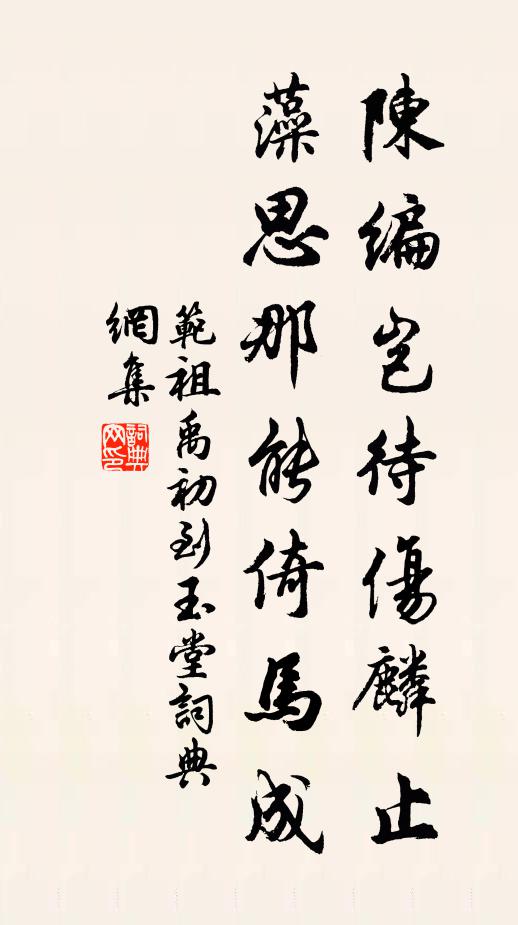 陳編豈待傷麟止
藻思那能倚馬成
範祖禹初到玉堂詞典
網集
詞典網印